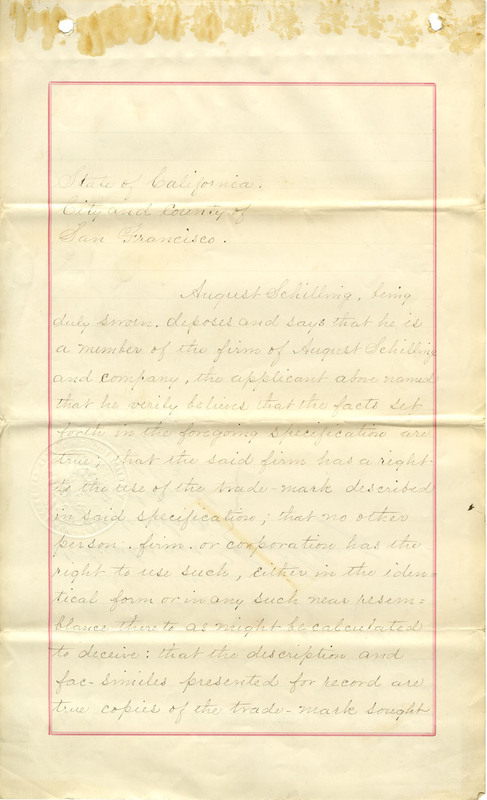 State of California.
City and County of
San Francisco.
August Schilling, being
duly sworn, deposes and says that he is
a member of the firm of August Schilling
and company, the applicant above named
that he verily believes that the facts set
forth in the foregoing specification are
true; that the said firm has a right
to the use of the trade-mark described
in said specification; that no other
person, firm, or corporation has the
right to use such, either in the iden=
tical form or in any such near resem=
blance thereto as might be calculated
to deceive: that the description and
fac-similes presented for record are
true copies of the trade-mark sought